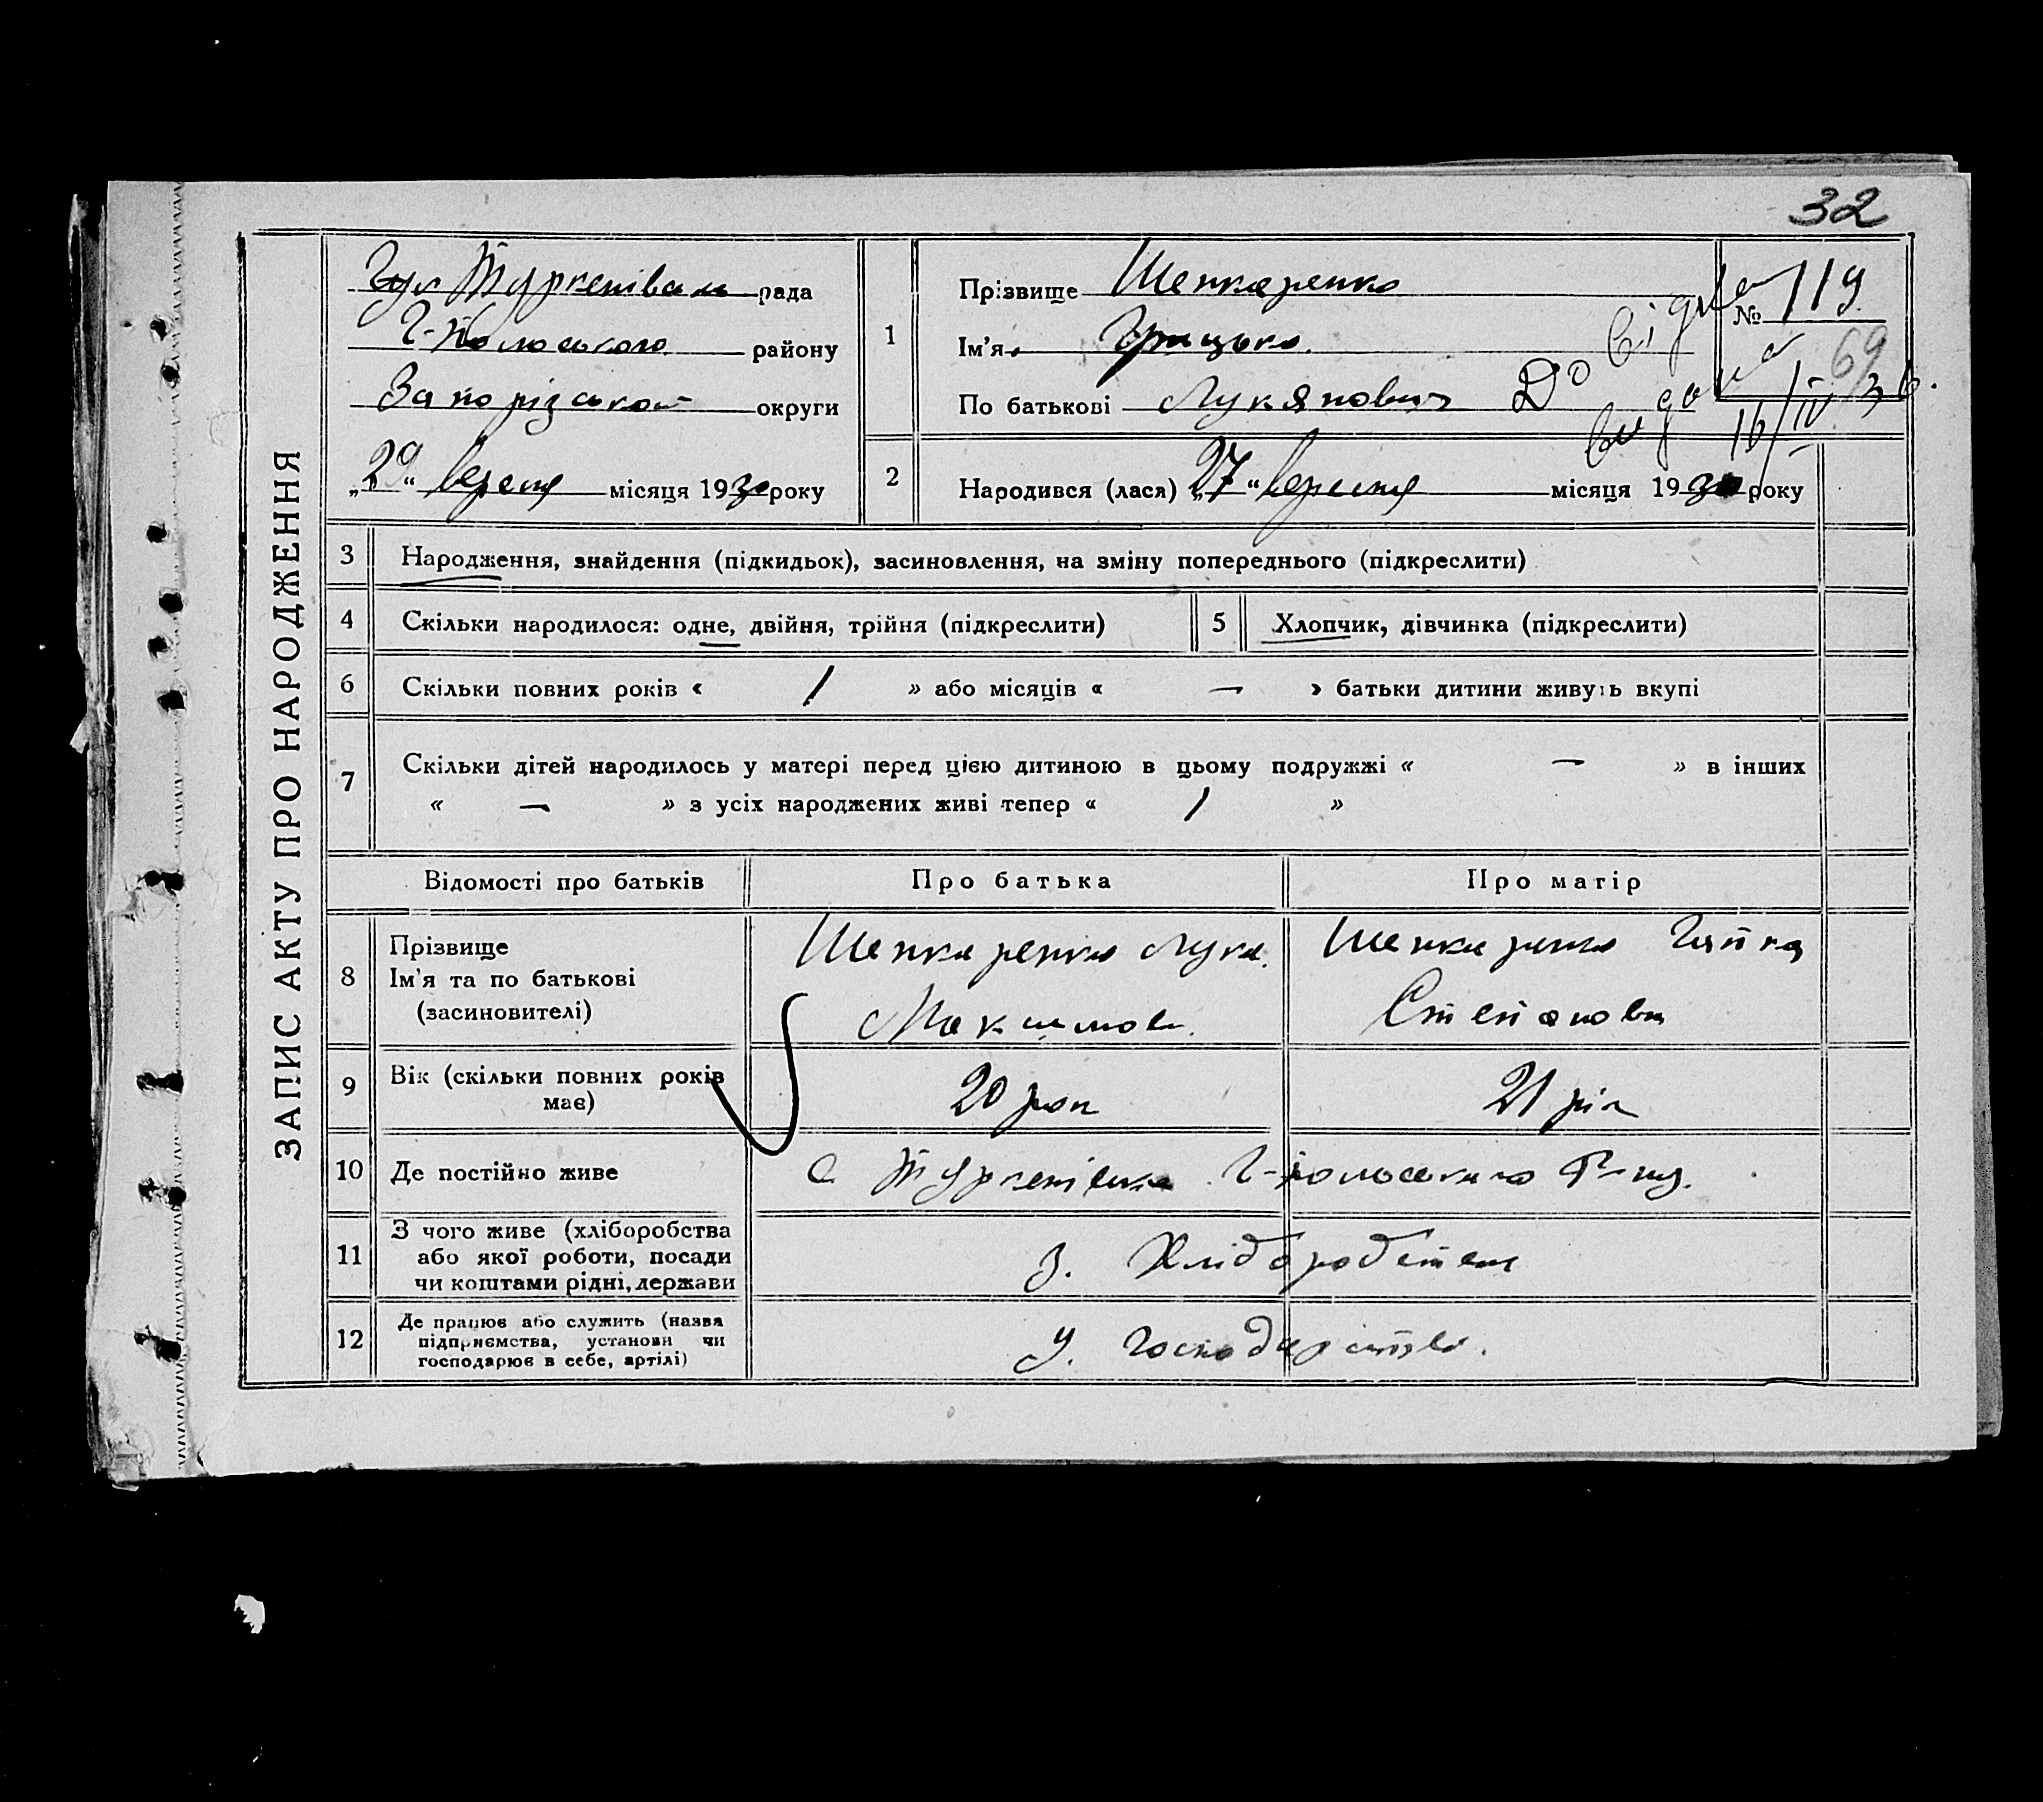 32
ЗАПИС АКТУ ПРО НАРОДЖЕННЯ
рада
району
Запорізької округи
„29“ вересня місяця 1930 року
1
Прізвище Шепкаренко
Ім'я Грицько
По батькові Лукянович
№ 119
69
До
видана
16/IV 36.
2
Народився (лася) „27“ вересня місяця 1930 року
3 Народження, знайдення (підкидьок), засиновлення, на зміну попереднього (підкреслити)
4 Скільки народилося: одне, двійня, трійня (підкреслити)
5 Хлопчик, дівчинка (підкреслити)
6 Скільки повних років « 1 » або місяців « — » батьки дитини живуть вкупі
7 Скільки дітей народилось у матері перед цією дитиною в цьому подружжі « — » в інших
« — » з усіх народжених живі тепер « 1 »
Відомості про батьків
Про батька
Про матір
8
Прізвище
Ім'я та по батькові
(засиновителі)
Шепкаренко Лука
Максимов.
Шепкаренко
Степановн
9
Вік (скільки повних років
має)
20 рок
21 рік
10 Де постійно живе
с Туркенівка Г-Польського
11
З чого живе (хліборобства
або якої роботи, посади
чи коштами рідні, держави
З. Хліборобства
12
Де працює або служить (назва
підприємства, установи чи
господарює в себе, артілі)
У. господарстві.